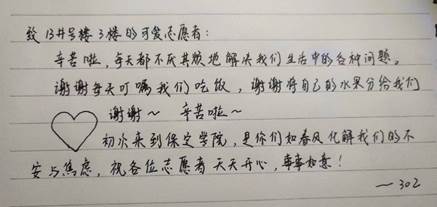 致13#号楼3楼的可爱志愿者：
辛苦啦，每天都不厌其烦地解决我们生活中的各种问题。
谢谢每天叮嘱我们吃饭，谢谢将自己的水果分给我们
谢谢～ 辛苦啦～
初次来到保定学院，是你们如春风化解我们的不
安与焦虑，祝各位志愿者天天开心，事事如意！
—302